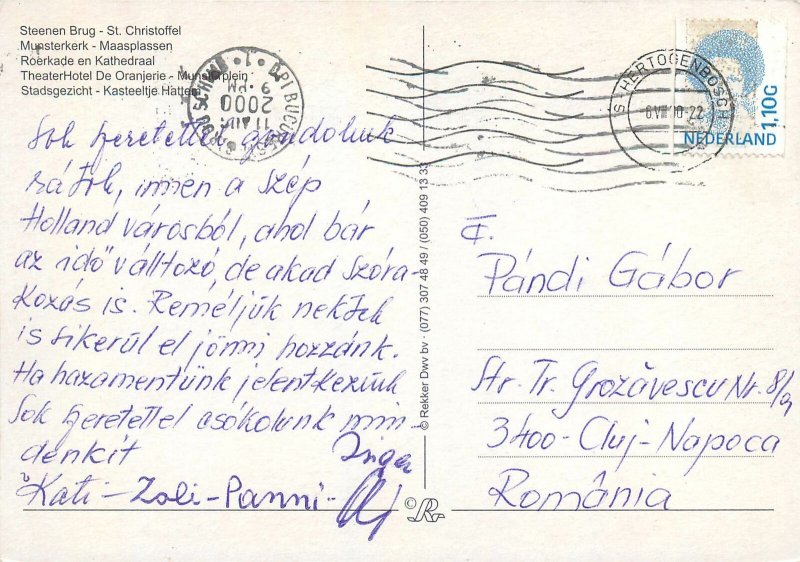 Steenen Brug - St. Christoffel
Munsterkerk - Maasplassen
Roerkade en Kathedraal
TheaterHotel De Oranjerie - Munsterplein
Stadsgezicht - Kasteeltje Hattem
11 AUG
2000
'S-HERTOGENBOSCH
NEDERLAND
1,10G
Sok szeretettel gondolunk
rátok, innen a szép
Holland városból, ahol bár
az idő változó, de akad szóra-
kozás is. Reméljük nektek
is sikerül el jönni hozzánk.
Ha hazamentünk jelentkezünk
Sok szeretettel csókolunk min-
denkit
Kati - Zoli - Panni -
© Rekker Dwv bv · (077) 307 48 49 / (050) 409 13 33
Pándi Gábor
Str. Tr. Grozăvescu Nr. 8/a
3400 - Cluj-Napoca
România